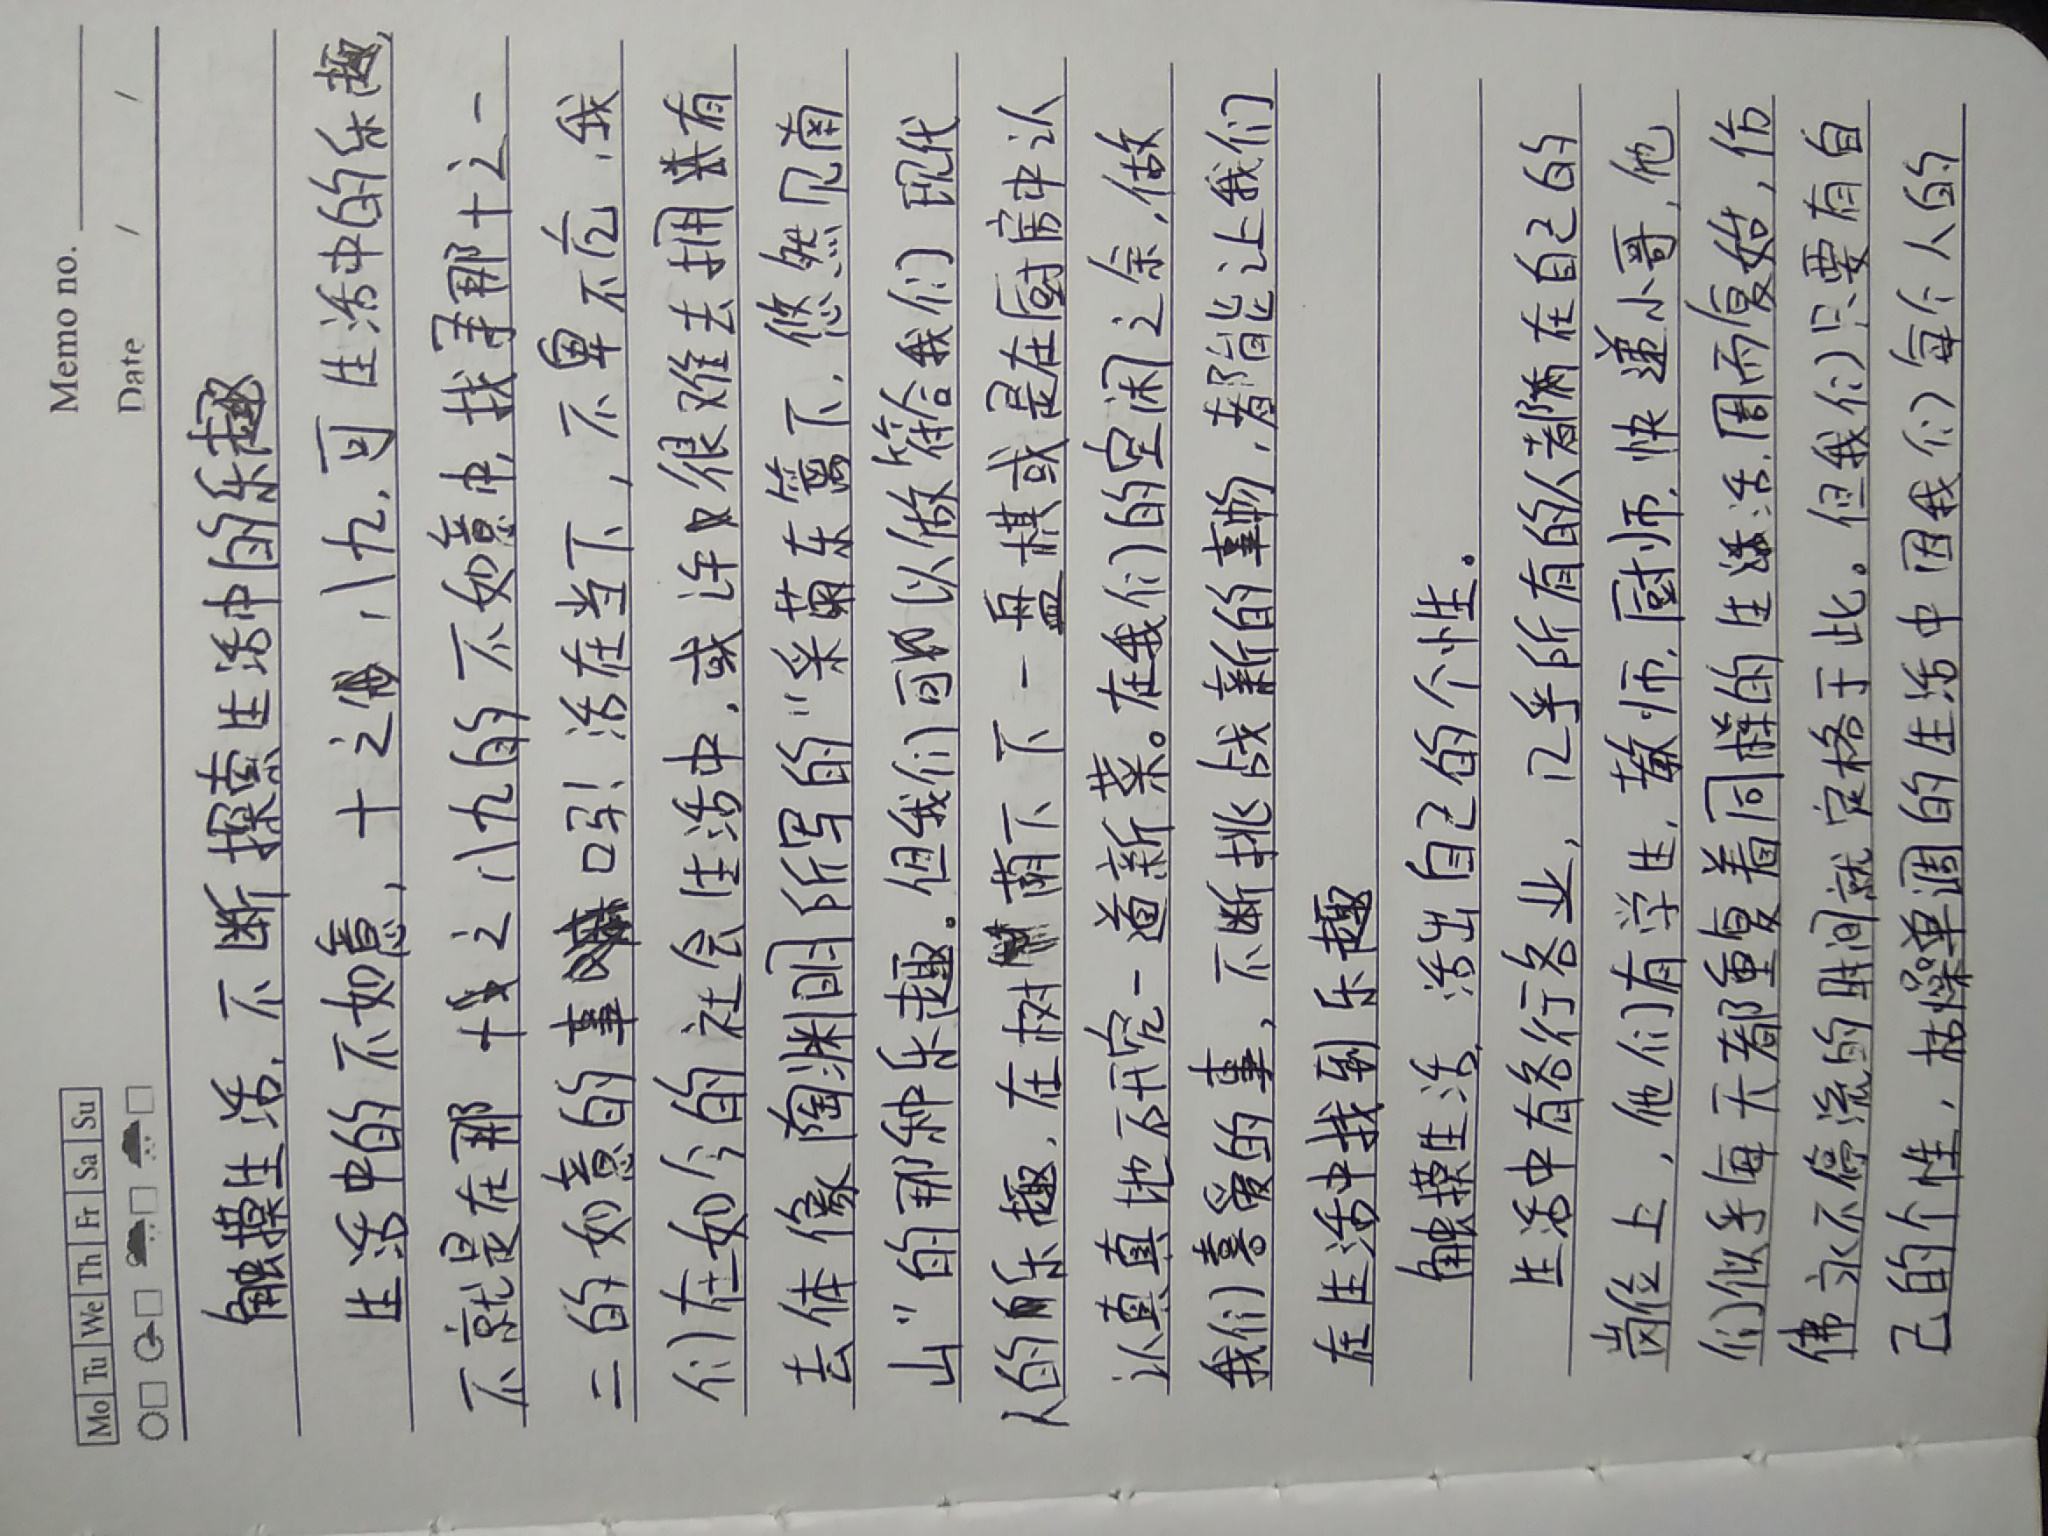 Memo no.
Mo Tu We Th Fr Sa Su
Date / /
触摸生活,不断探索生活中的乐趣
生活中的不如意,十之八九,可生活中的乐趣,
不就是在那十之八九的不如意中,找寻那十之一
二的如意的事吗!活在当下,不卑不亢,我
们在如今的社会生活中,或许很难去拥有
去体像陶渊明所写的“采菊东篱下,悠然见南
山”的那种乐趣。但我们可以做符合我们现代
人的乐趣,在树荫下下一盘棋或是在厨房中认
认真真地不研究一道新菜。在我们的空闲之余,做
我们喜爱的事,不断挑战新的事物,都能让我们
在生活中找到乐趣
触摸生活,活出自己的个性。
生活中有各行各业,几乎所有的人都在自己的
岗位上,他们有学生,教师,厨师,快递小哥,他
们似乎每天都重复着同样的生活,周而复始,仿
佛永不停流的时间就定格于此。但我们只要有自
己的个性,枯燥单调的生活中因我们每个人的